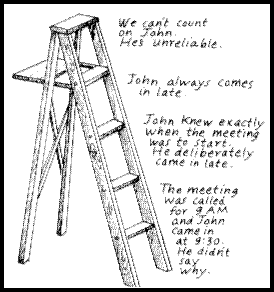 We can't count
on John.
Hes unreliable.
John always comes
in late.
John knew exactly
when the meeting
was to start.
He deliberately
came in late.
The meeting
was called
for 9 AM
and John
came in
at 9:30.
He didn't
say
why.